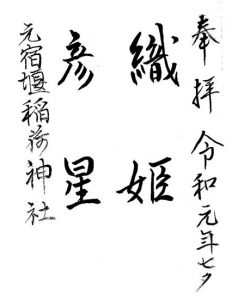 奉拝 令和元年七夕
織姫
彦星
元宿堰稲荷神社